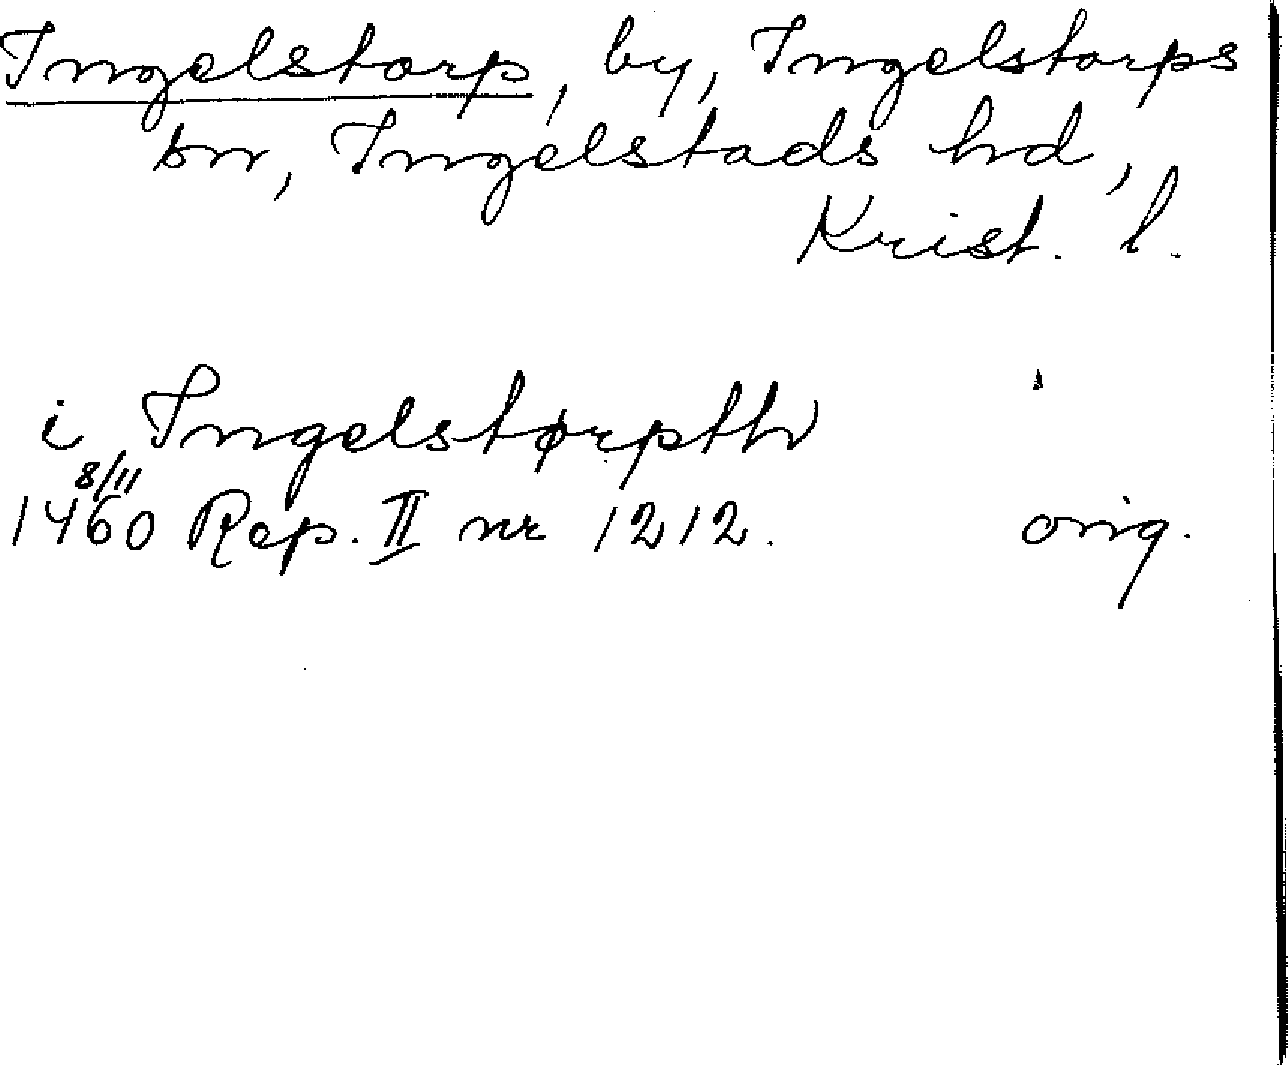 Ingelstorp, by, Ingelstorps
sn, Ingelstads hd,
Krist. l.
i Ingelstørpth
8/11
1460 Rep. II nr 1212. orig.